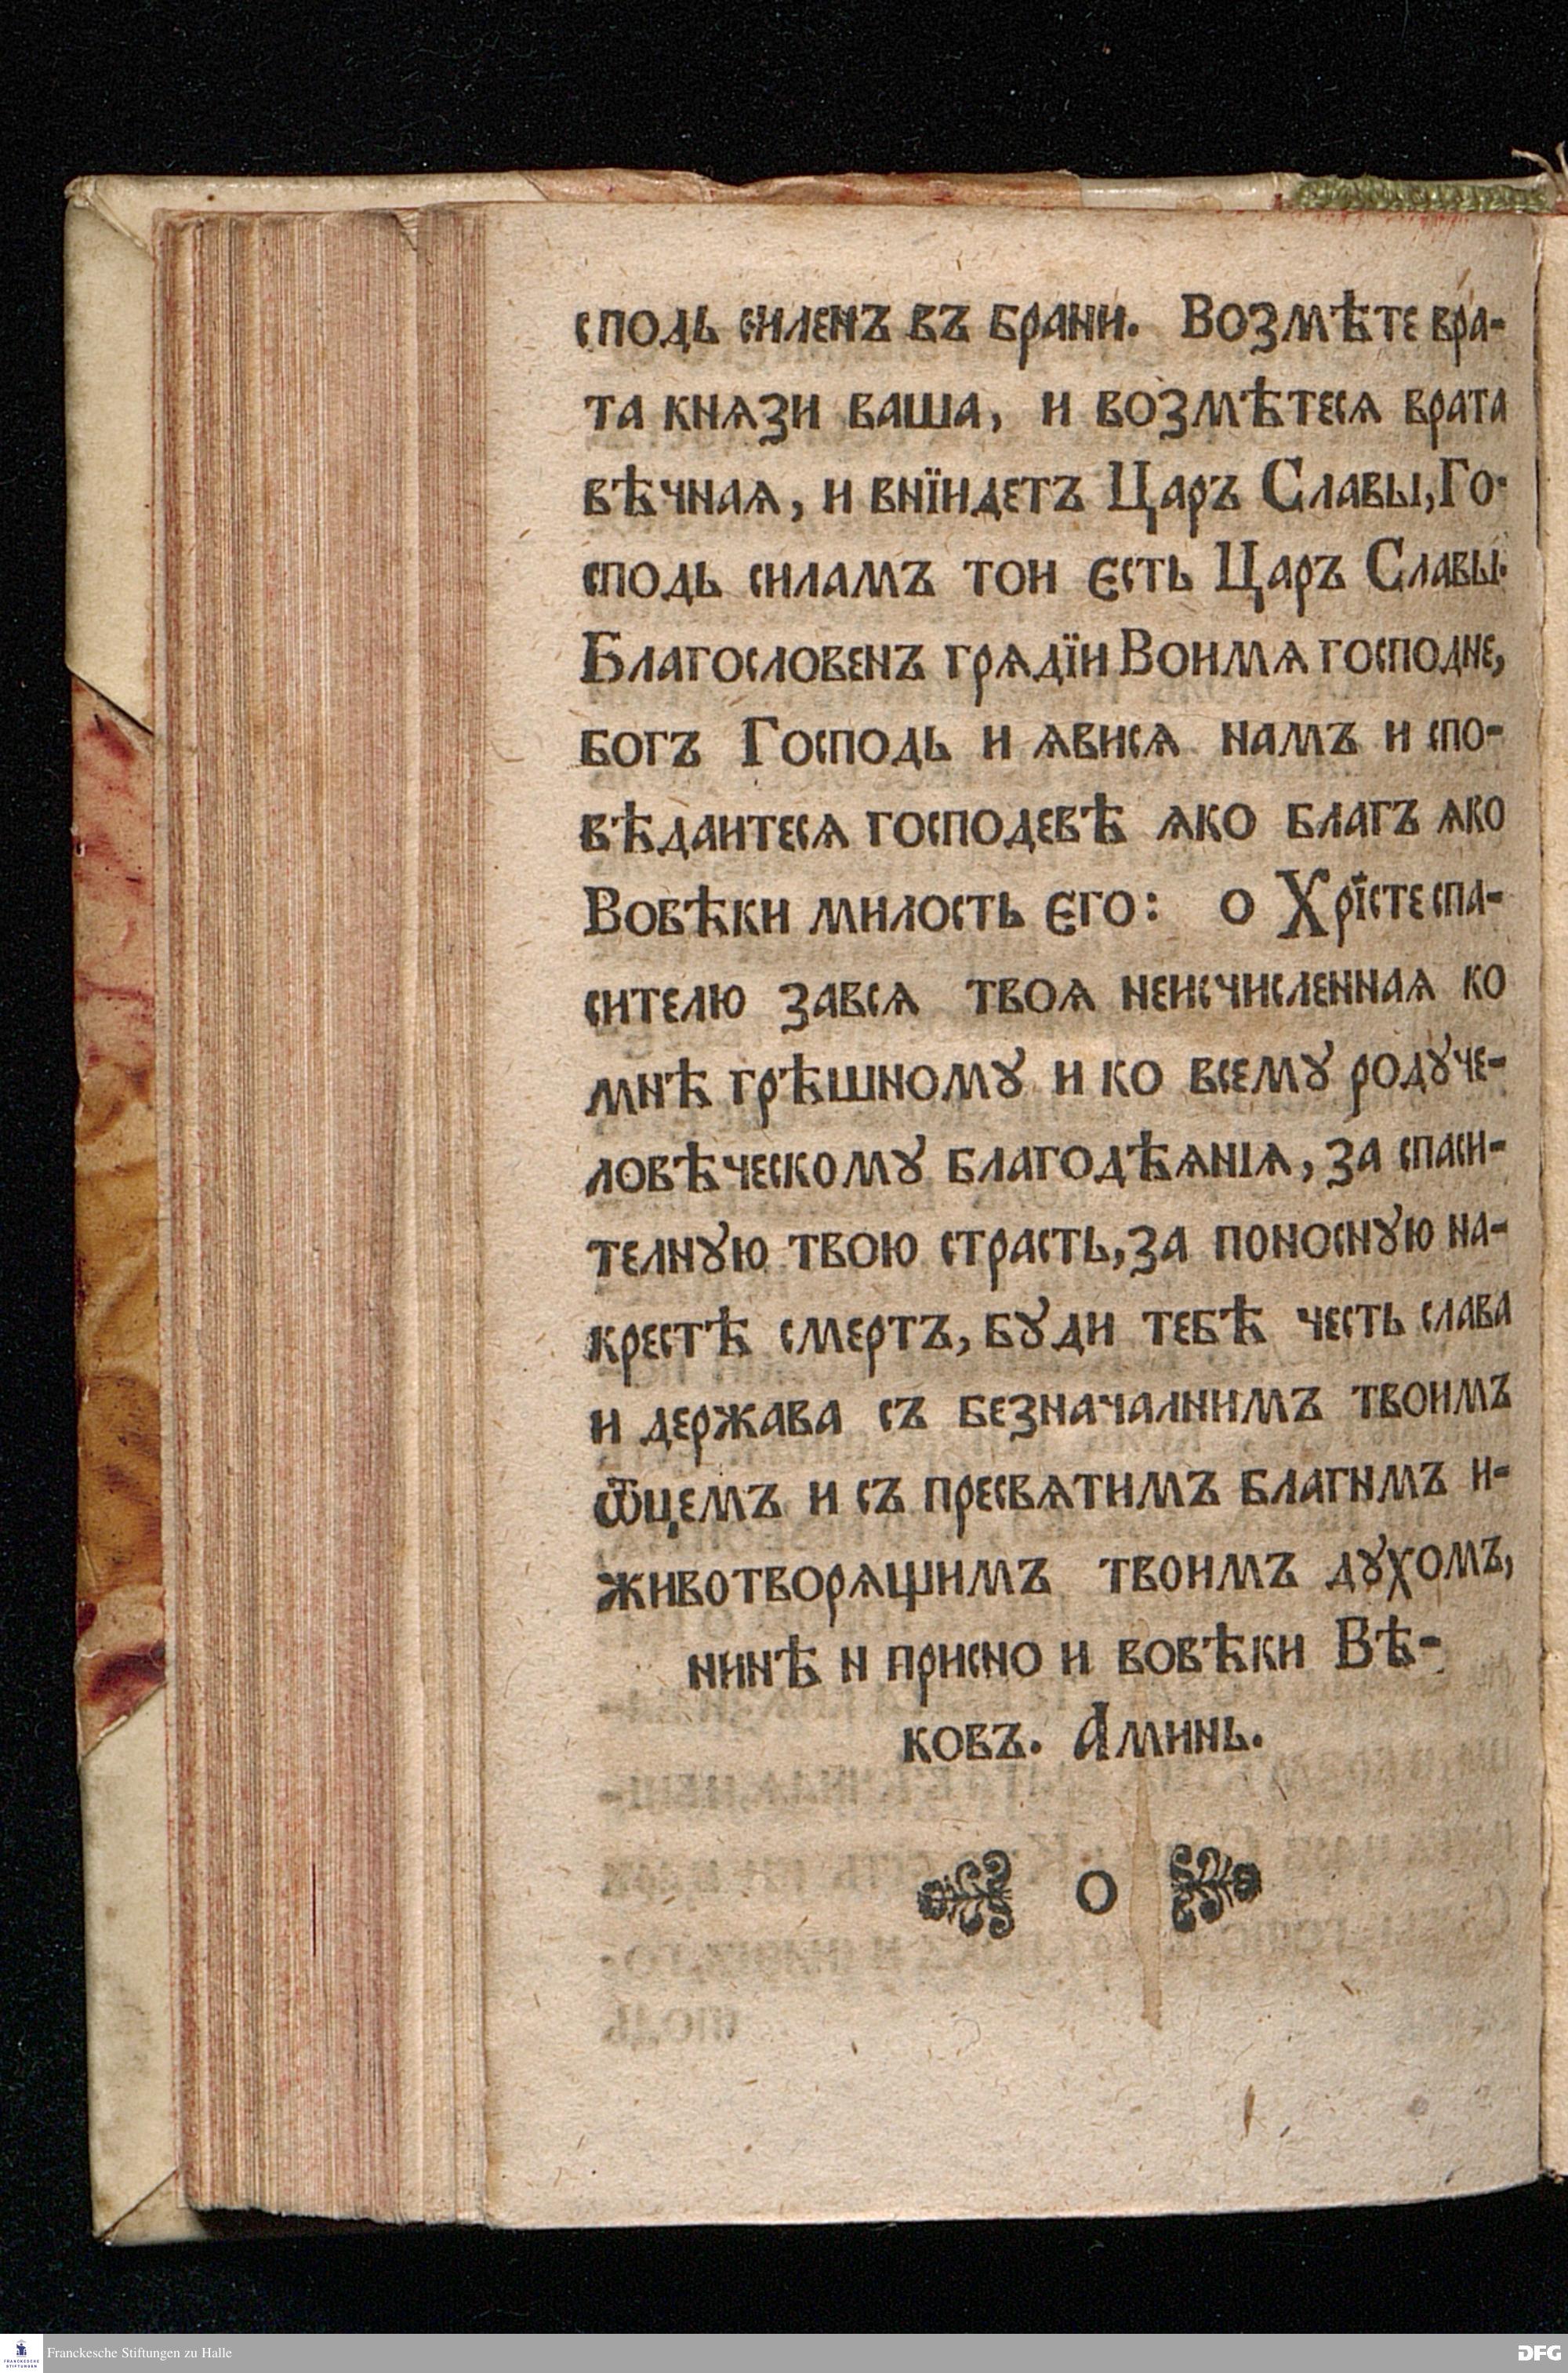 сподь силенъ въ брани. Возмѣте вра-
та кнѧзи ваша, и возмѣтесѧ врата
вѣчнаѧ, и внїидетъ Царъ Славы, Го-
сподь силамъ тои єсть Царъ Славы.
Благословенъ грѧдїи Воимѧ господне,
богъ Господь и ѧвисѧ намъ и спо-
вѣдаитесѧ господевѣ ѧко благъ ѧко
Вовѣки милость єго: о Хрїсте спа-
сителю завсѧ твоѧ неисчисленнаѧ ко
мнѣ грѣшномꙋ и ко всемꙋ родꙋ че-
ловѣческомꙋ благодѣѧніѧ, за спаси-
телнꙋю твою страсть, за поноснꙋю на-
крестѣ смертъ, бꙋди тебѣ честь слава
и держава съ безначалнимъ твоимъ
ѿцемъ и съ пресвѧтимъ благимъ и-
животворѧщимъ твоимъ дꙋхомъ,
нинѣ и присно и вовѣки Вѣ-
ковъ. Аминь.
О
Franckesche Stiftungen zu Halle
DFG